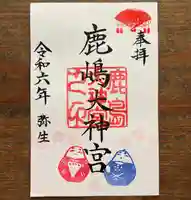 奉拝
鹿嶋天神宮
令和六年 弥生